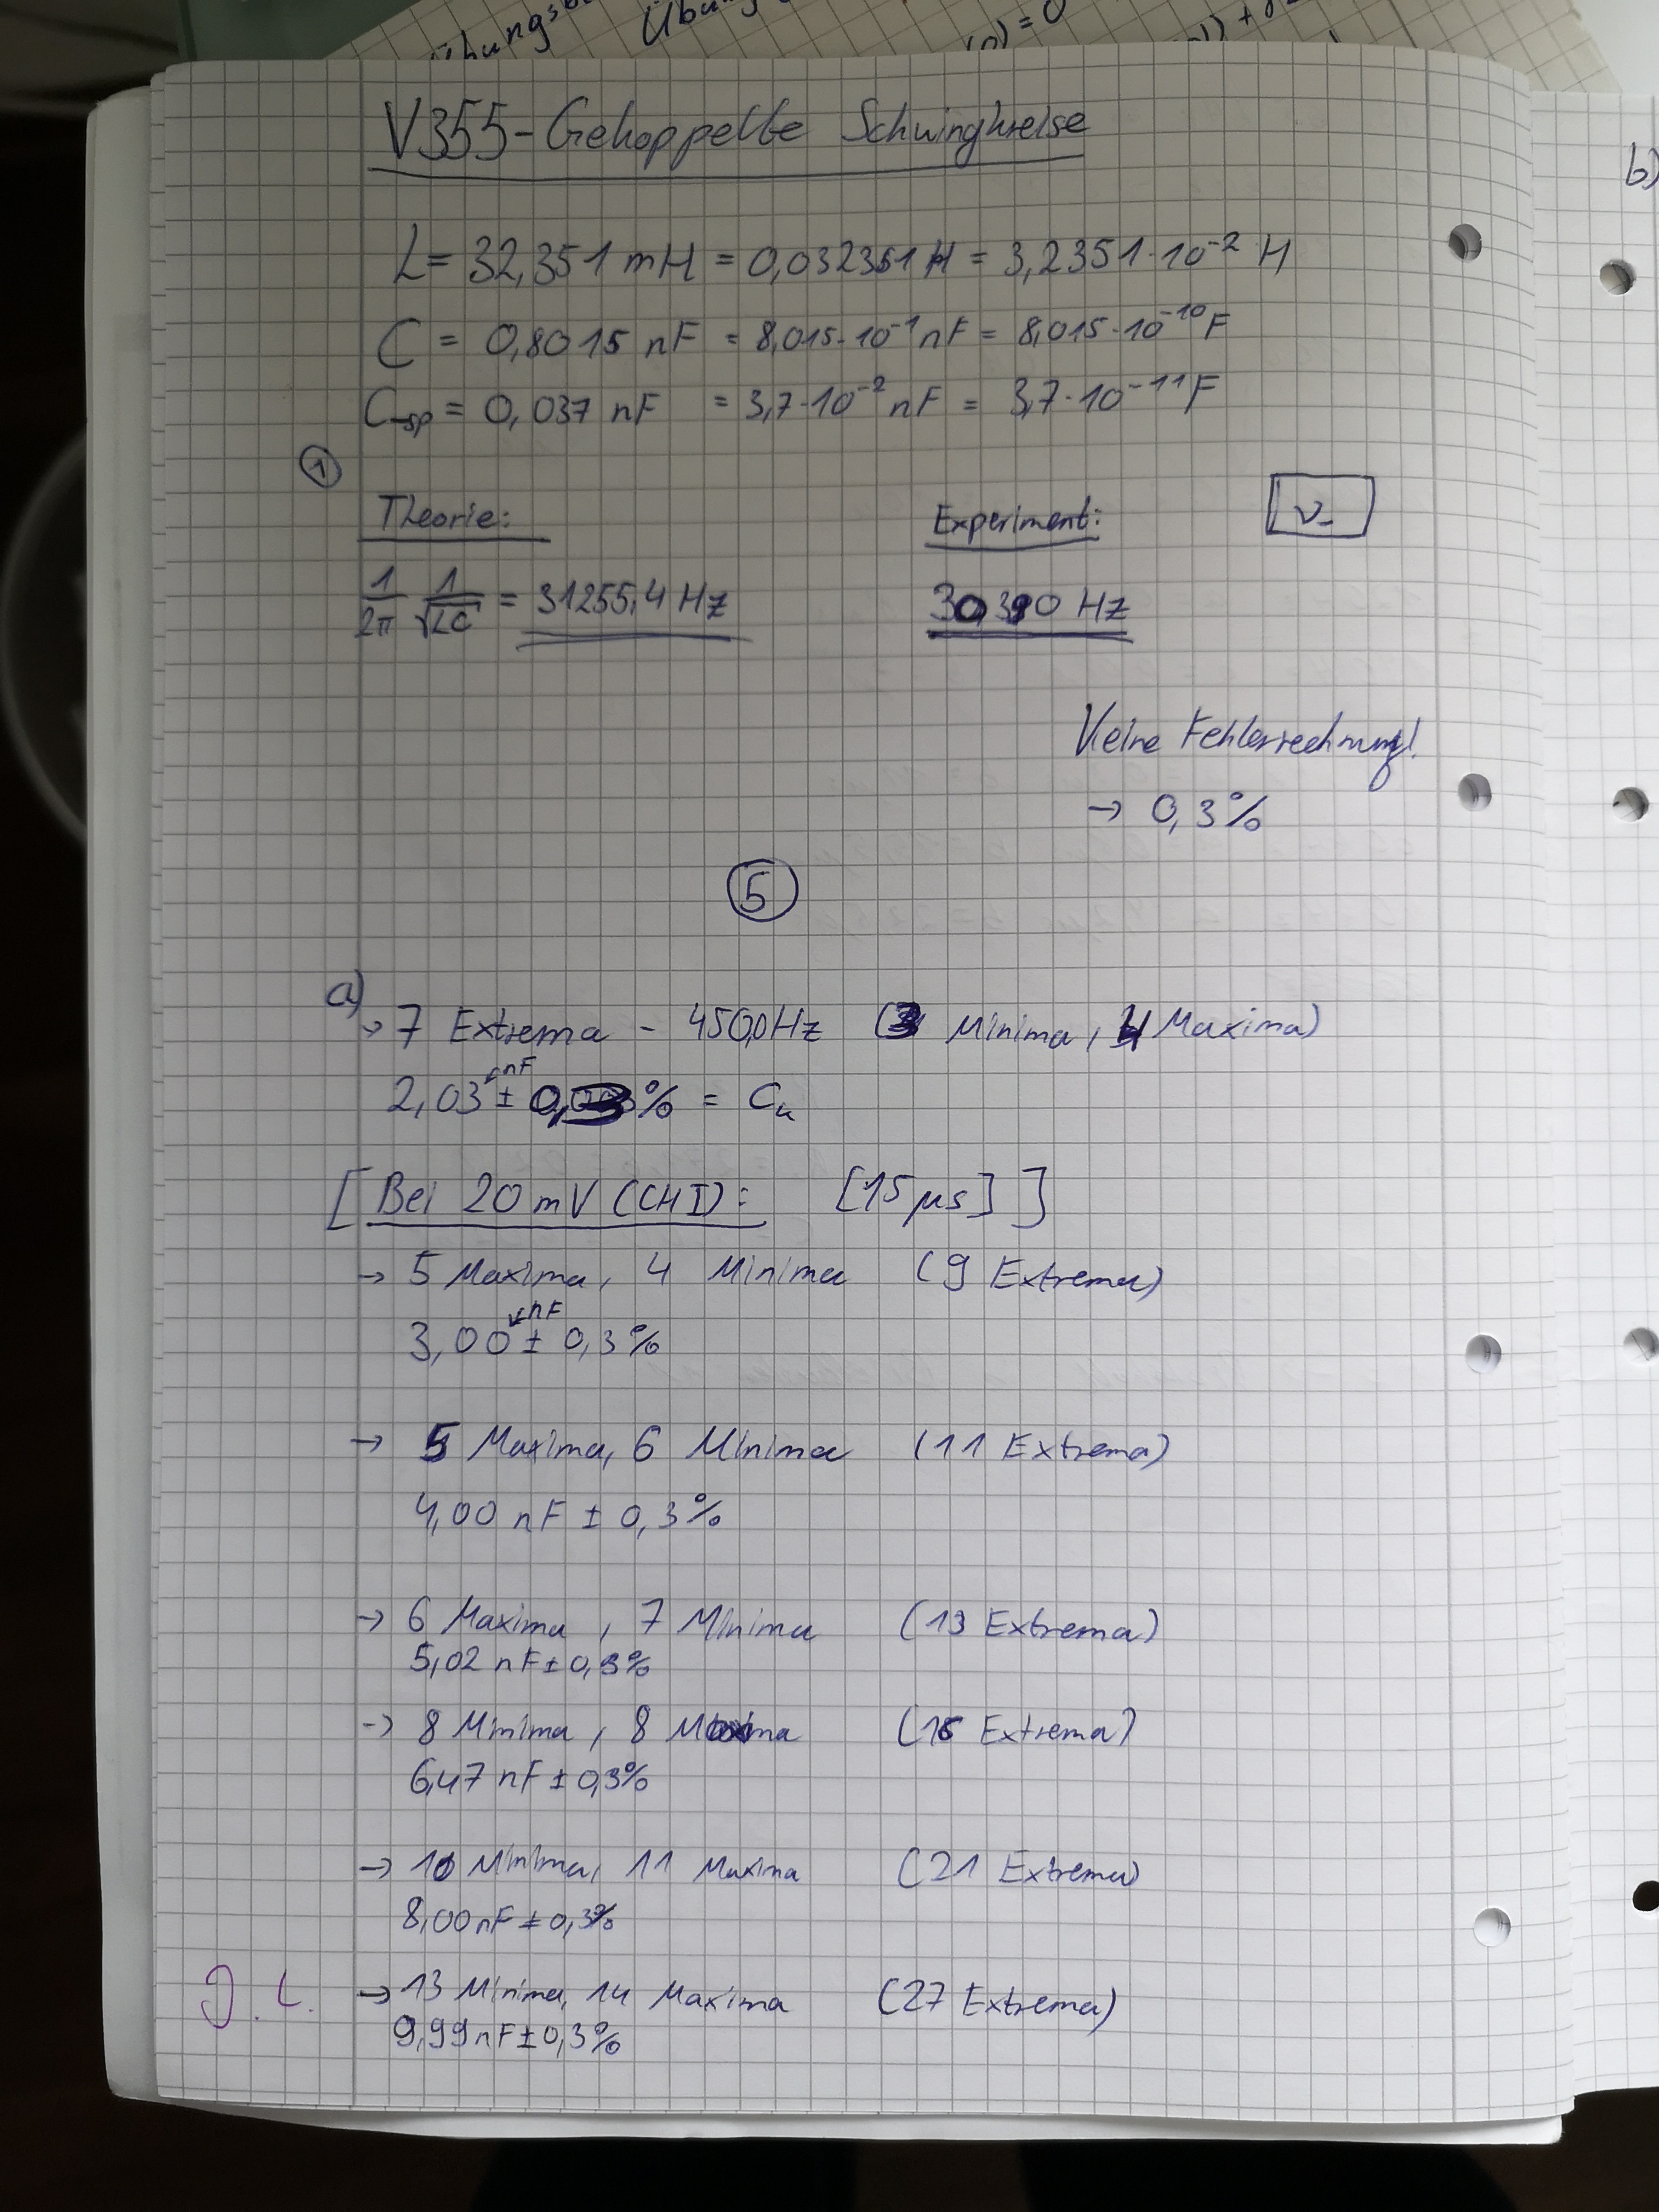 Übungsb
Übung
(0) = 0
V355-Gekoppelte Schwingkreise
b)
L = 32,351 mH = 0,032351 H = 3,2351·10⁻² H
C = 0,8015 nF = 8,015·10⁻¹ nF = 8,015·10⁻¹⁰ F
C_sp = 0,037 nF = 3,7·10⁻² nF = 3,7·10⁻¹¹ F
①
Theorie: Experiment: ν₋
1/2π 1/√LC = 31255,4 Hz 30,390 Hz
Keine Fehlerrechnung!
→ 0,3%
⑤
a)
→ 7 Extrema - 450,0Hz (3 Minima, 4 Maxima)
↙nF
2,03 ± % = Cₖ
[Bei 20 mV (CHI): [15 µs] ]
→ 5 Maxima, 4 Minima (9 Extrema)
↙nF
3,00 ± 0,3%
→ 5 Maxima, 6 Minima (11 Extrema)
4,00 nF ± 0,3%
→ 6 Maxima, 7 Minima (13 Extrema)
5,02 nF ± 0,3%
→ 8 Minima, 8 Maxima (16 Extrema)
6,47 nF ± 0,3%
→ 10 Minima, 11 Maxima (21 Extrema)
8,00 nF ± 0,3%
J. L. → 13 Minima, 14 Maxima (27 Extrema)
9,99 nF ± 0,3%